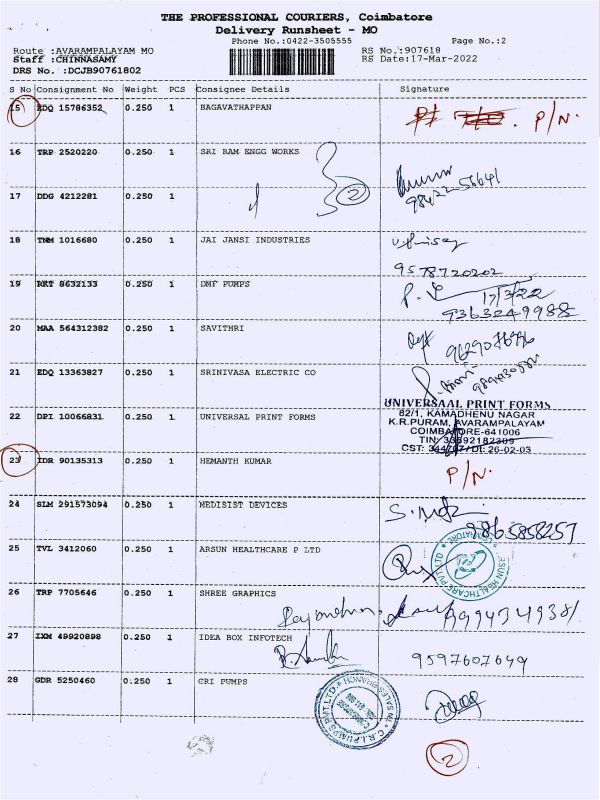 THE PROFESSIONAL COURIERS, Coimbatore
Delivery Runsheet - MO
Phone No.:0422-3505555 Page No.:2
Route :AVARAMPALAYAM MO RS No.:907618
Staff :CHINNASAMY RS Date:17-Mar-2022
DRS No. :DCJB90761802
S No Consignment No Weight PCS Consignee Details Signature
15 EDQ 15786352 0.250 1 BAGAVATHAPPAN P/N.
16 TRP 2520220 0.250 1 SRI RAM ENGG WORKS
2
17 DDG 4212281 0.250 1
18 TNM 1016680 0.250 1 JAI JANSI INDUSTRIES
9578720202
19 RKT 8632133 0.250 1 DMF PUMPS 17/3/22
9363249988
20 MAA 564312382 0.250 1 SAVITHRI
21 EDQ 13363827 0.250 1 SRINIVASA ELECTRIC CO
UNIVERSAAL PRINT FORMS
82/1, KAMADHENU NAGAR
22 DPI 10066831 0.250 1 UNIVERSAL PRINT FORMS K.R.PURAM, AVARAMPALAYAM
COIMBATORE-641006
TIN: 33892182309
CST: DT: 26-02-03
23 IDR 90135313 0.250 1 HEMANTH KUMAR P/N.
24 SLM 291573094 0.250 1 MEDISIST DEVICES
9865858257
25 TVL 3412060 0.250 1 ARSUN HEALTHCARE P LTD
26 TRP 7705646 0.250 1 SHREE GRAPHICS
27 IXM 49920898 0.250 1 IDEA BOX INFOTECH
9597607649
28 GDR 5250460 0.250 1 CRI PUMPS
2